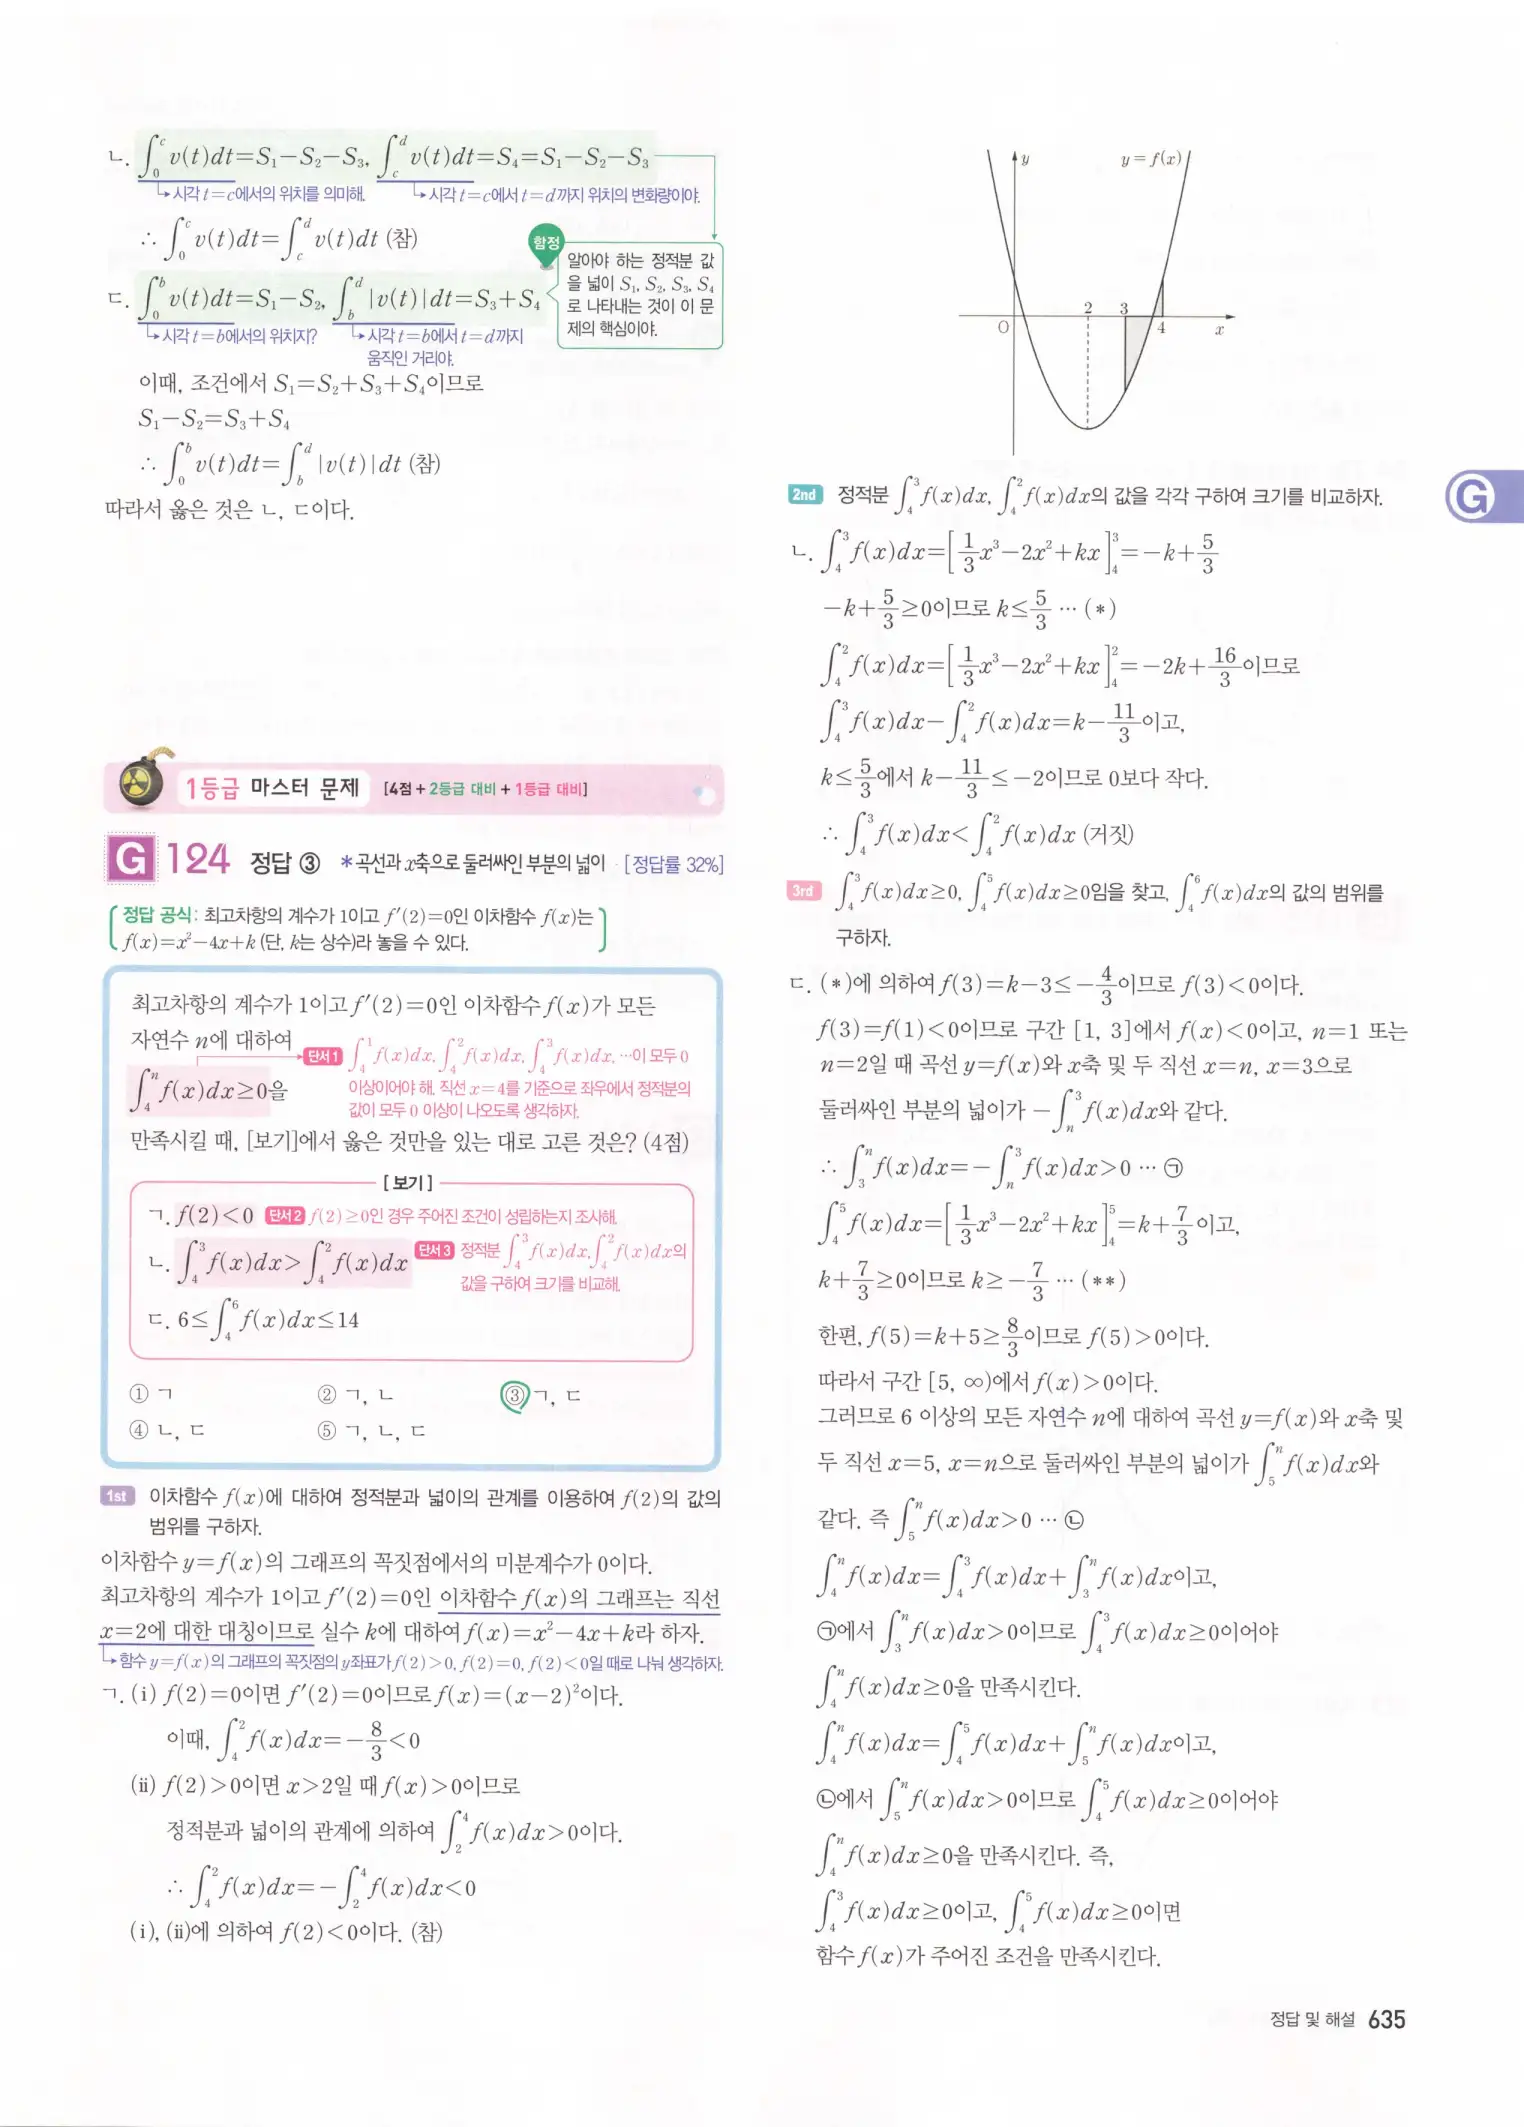 ㄴ. ∫₀ᶜ v(t)dt=S₁−S₂−S₃, ∫_c^d v(t)dt=S₄=S₁−S₂−S₃
↳시각 t=c에서의 위치를 의미해. ↳시각 t=c에서 t=d까지 위치의 변화량이야.
∴ ∫₀ᶜ v(t)dt=∫_c^d v(t)dt (참)
함정
알아야 하는 정적분 값
을 넓이 S₁, S₂, S₃, S₄
로 나타내는 것이 이 문
제의 핵심이야.
ㄷ. ∫₀ᵇ v(t)dt=S₁−S₂, ∫_b^d |v(t)|dt=S₃+S₄
↳시각 t=b에서의 위치지? ↳시각 t=b에서 t=d까지
움직인 거리야.
이때, 조건에서 S₁=S₂+S₃+S₄이므로
S₁−S₂=S₃+S₄
∴ ∫₀ᵇ v(t)dt=∫_b^d |v(t)|dt (참)
따라서 옳은 것은 ㄴ, ㄷ이다.
1등급 마스터 문제 [4점 + 2등급 대비 + 1등급 대비]
G 124 정답 ③ *곡선과 x축으로 둘러싸인 부분의 넓이 [정답률 32%]
정답 공식: 최고차항의 계수가 1이고 f′(2)=0인 이차함수 f(x)는
f(x)=x²−4x+k (단, k는 상수)라 놓을 수 있다.
최고차항의 계수가 1이고 f′(2)=0인 이차함수 f(x)가 모든
자연수 n에 대하여
단서1 ∫₄¹ f(x)dx, ∫₄² f(x)dx, ∫₄³ f(x)dx, …이 모두 0
이상이어야 해. 직선 x=4를 기준으로 좌우에서 정적분의
값이 모두 0 이상이 나오도록 생각하자.
∫₄ⁿ f(x)dx≥0을
만족시킬 때, [보기]에서 옳은 것만을 있는 대로 고른 것은? (4점)
[보기]
ㄱ. f(2)<0 단서2 f(2)≥0인 경우 주어진 조건이 성립하는지 조사해.
ㄴ. ∫₄³ f(x)dx>∫₄² f(x)dx 단서3 정적분 ∫₄³ f(x)dx, ∫₄² f(x)dx의
값을 구하여 크기를 비교해.
ㄷ. 6≤∫₄⁶ f(x)dx≤14
① ㄱ ② ㄱ, ㄴ ③ ㄱ, ㄷ
④ ㄴ, ㄷ ⑤ ㄱ, ㄴ, ㄷ
1st 이차함수 f(x)에 대하여 정적분과 넓이의 관계를 이용하여 f(2)의 값의
범위를 구하자.
이차함수 y=f(x)의 그래프의 꼭짓점에서의 미분계수가 0이다.
최고차항의 계수가 1이고 f′(2)=0인 이차함수 f(x)의 그래프는 직선
x=2에 대한 대칭이므로 실수 k에 대하여 f(x)=x²−4x+k라 하자.
↳함수 y=f(x)의 그래프의 꼭짓점의 y좌표가 f(2)>0, f(2)=0, f(2)<0일 때로 나눠 생각하자.
ㄱ. (ⅰ) f(2)=0이면 f′(2)=0이므로 f(x)=(x−2)²이다.
이때, ∫₄² f(x)dx=−8/3<0
(ⅱ) f(2)>0이면 x>2일 때 f(x)>0이므로
정적분과 넓이의 관계에 의하여 ∫₂⁴ f(x)dx>0이다.
∴ ∫₄² f(x)dx=−∫₂⁴ f(x)dx<0
(ⅰ), (ⅱ)에 의하여 f(2)<0이다. (참)
y y=f(x)
O 2 3 4 x
G
2nd 정적분 ∫₄³ f(x)dx, ∫₄² f(x)dx의 값을 각각 구하여 크기를 비교하자.
ㄴ. ∫₄³ f(x)dx=[1/3 x³−2x²+kx]₄³=−k+5/3
−k+5/3≥0이므로 k≤5/3 … (*)
∫₄² f(x)dx=[1/3 x³−2x²+kx]₄²=−2k+16/3이므로
∫₄³ f(x)dx−∫₄² f(x)dx=k−11/3이고,
k≤5/3에서 k−11/3≤−2이므로 0보다 작다.
∴ ∫₄³ f(x)dx<∫₄² f(x)dx (거짓)
3rd ∫₄³ f(x)dx≥0, ∫₄⁵ f(x)dx≥0임을 찾고, ∫₄⁶ f(x)dx의 값의 범위를
구하자.
ㄷ. (*)에 의하여 f(3)=k−3≤−4/3이므로 f(3)<0이다.
f(3)=f(1)<0이므로 구간 [1, 3]에서 f(x)<0이고, n=1 또는
n=2일 때 곡선 y=f(x)와 x축 및 두 직선 x=n, x=3으로
둘러싸인 부분의 넓이가 −∫ₙ³ f(x)dx와 같다.
∴ ∫₃ⁿ f(x)dx=−∫ₙ³ f(x)dx>0 … ㉠
∫₄⁵ f(x)dx=[1/3 x³−2x²+kx]₄⁵=k+7/3이고,
k+7/3≥0이므로 k≥−7/3 … (**)
한편, f(5)=k+5≥8/3이므로 f(5)>0이다.
따라서 구간 [5, ∞)에서 f(x)>0이다.
그러므로 6 이상의 모든 자연수 n에 대하여 곡선 y=f(x)와 x축 및
두 직선 x=5, x=n으로 둘러싸인 부분의 넓이가 ∫₅ⁿ f(x)dx와
같다. 즉 ∫₅ⁿ f(x)dx>0 … ㉡
∫₄ⁿ f(x)dx=∫₄³ f(x)dx+∫₃ⁿ f(x)dx이고,
㉠에서 ∫₃ⁿ f(x)dx>0이므로 ∫₄³ f(x)dx≥0이어야
∫₄ⁿ f(x)dx≥0을 만족시킨다.
∫₄ⁿ f(x)dx=∫₄⁵ f(x)dx+∫₅ⁿ f(x)dx이고,
㉡에서 ∫₅ⁿ f(x)dx>0이므로 ∫₄⁵ f(x)dx≥0이어야
∫₄ⁿ f(x)dx≥0을 만족시킨다. 즉,
∫₄³ f(x)dx≥0이고, ∫₄⁵ f(x)dx≥0이면
함수 f(x)가 주어진 조건을 만족시킨다.
정답 및 해설 635